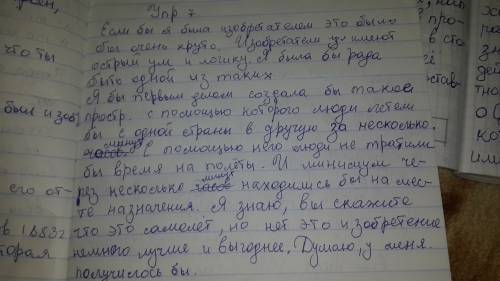 Упр 7
Если бы я была изобретателем это было
бы очень круто. Изобретатели имеют
острый ум и логику. Я была бы рада
быть одной из таких
Я бы первым делом создала бы такое
простр. с помощью которого люди летели
бы с одной страны в другую за несколько
минут
часов. С помощью него люди не тратили
бы время на полёты. И минимум че-
минут
рез несколько часов находились бы на мес-
те назначения. Я знаю, вы скажите
что это самолёт, но нет это изобретение
немного лучше и выгоднее. Думаю, у меня
получилось бы.
что ты
был изоб
его от-
в 1683г
торая
про-
в сто
став-